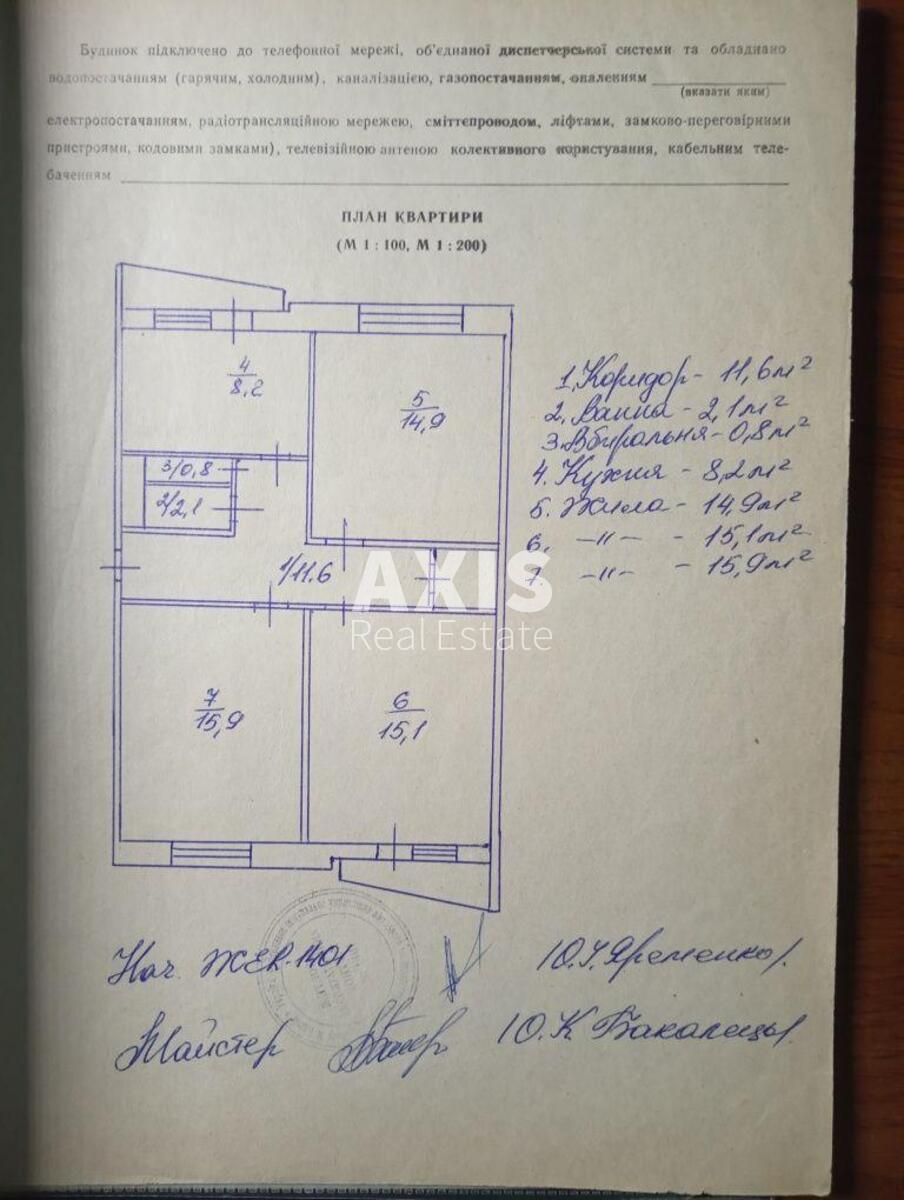 Будинок підключено до телефонної мережі, об'єднаної диспетчерської системи та обладнано
водопостачанням (гарячим, холодним), каналізацією, газопостачанням, опаленням
(вказати яким)
електропостачанням, радіотрансляційною мережею, сміттєпроводом, ліфтами, замково-переговірними
пристроями, кодовими замками), телевізійною антеною колективного користування, кабельним теле-
баченням
ПЛАН КВАРТИРИ
(М 1 : 100, М 1 : 200)
4
8,2
5
14,9
3/0,8
2/2,1
1/11.6
7
15,9
6
15,1
1. Коридор - 11,6 м²
2. Ванна - 2,1 м²
3. Вбиральня - 0,8 м²
4. Кухня - 8,2 м²
5. Жила - 14,9 м²
6. -"- - 15,1 м²
7. -"- - 15,9 м²
AXIS
Real Estate
Нач. ЖЕК 1401
Майстер